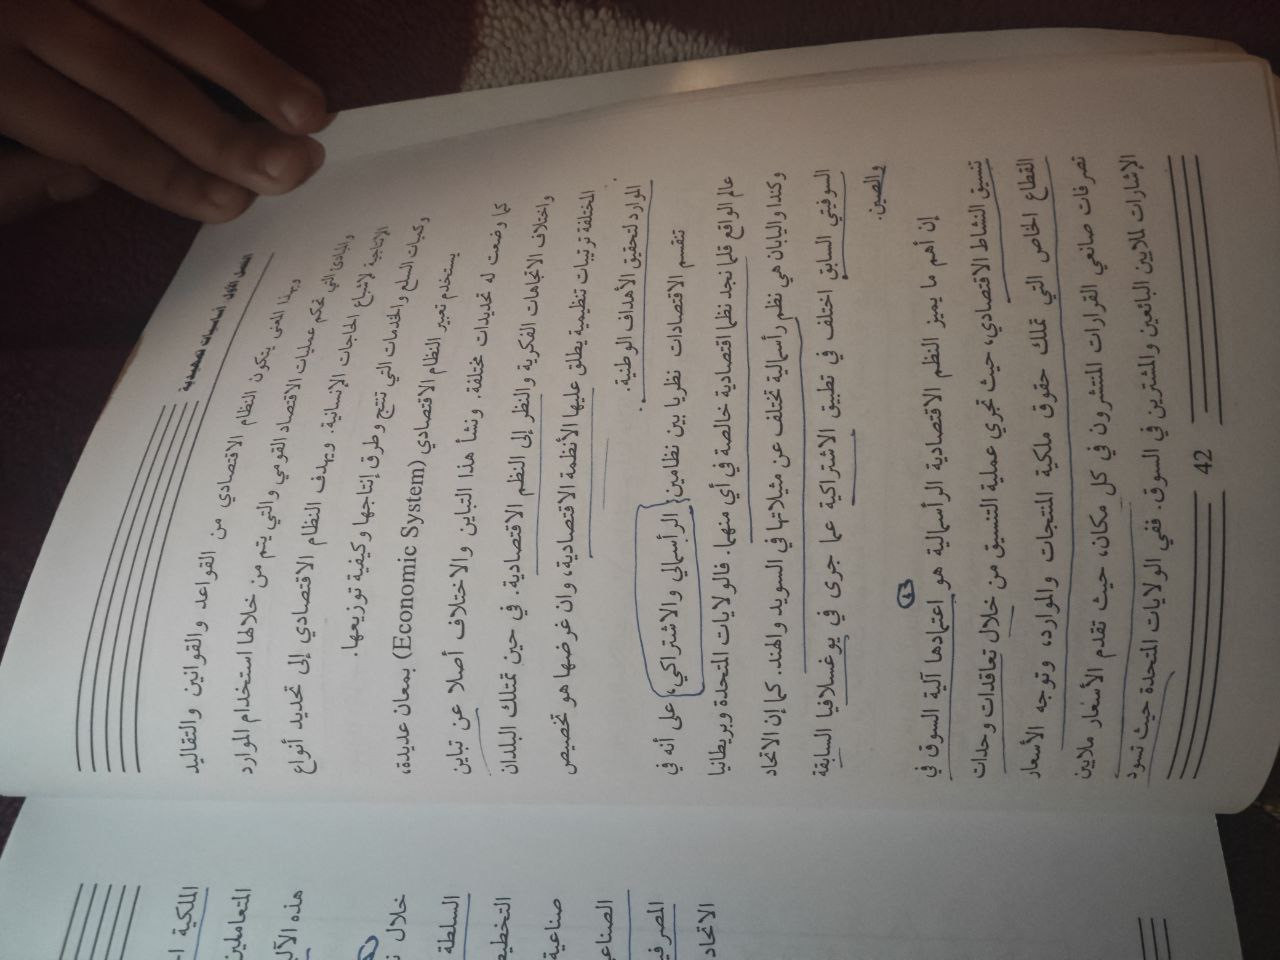 الفصل الأول: أساسيات تمهيدية
وبهذا المعنى يتكون النظام الاقتصادي من القواعد والقوانين والتقاليد
والمبادئ التي تحكم عمليات الاقتصاد القومي والتي يتم من خلالها استخدام الموارد
الإنتاجية لإشباع الحاجات الإنسانية. ويهدف النظام الاقتصادي إلى تحديد أنواع
وكميات السلع والخدمات التي تنتج وطرق إنتاجها وكيفية توزيعها.
يستخدم تعبير النظام الاقتصادي (Economic System) بمعان عديدة،
كما وضعت له تحديدات مختلفة. ونشأ هذا التباين والاختلاف أصلا عن تباين
واختلاف الاتجاهات الفكرية والنظر إلى النظم الاقتصادية. في حين تمتلك البلدان
المختلفة ترتيبات تنظيمية يطلق عليها الأنظمة الاقتصادية، وان غرضها هو تخصيص
الموارد لتحقيق الأهداف الوطنية.
تنقسم الاقتصادات نظريا بين نظامين الرأسمالي والاشتراكي، على أنه في
عالم الواقع قلما نجد نظما اقتصادية خالصة في أي منهما. فالولايات المتحدة وبريطانيا
وكندا واليابان هي نظم رأسمالية تختلف عن مثيلاتها في السويد والهند. كما إن الاتحاد
السوفيتي السابق اختلف في تطبيق الاشتراكية عما جرى في يوغسلافيا السابقة
والصين.
إن أهم ما يميز النظم الاقتصادية الرأسمالية هو اعتمادها آلية السوق في
تنسيق النشاط الاقتصادي، حيث تجري عملية التنسيق من خلال تعاقدات وحدات
القطاع الخاص التي تملك حقوق ملكية المنتجات والموارد، وتوجه الأسعار
تصرفات صانعي القرارات المنتشرون في كل مكان، حيث تقدم الأسعار ملايين
الإشارات لملايين البائعين والمشترين في السوق. ففي الولايات المتحدة حيث تسود
42
الملكية
المتعاملين
هذه الآلي
خلال
السلطة
التخطيط
صناعية
الصناعي
المصرفي
الاتحاد